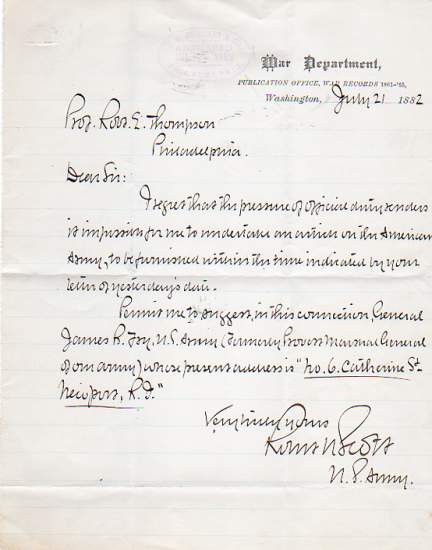 War Department,
PUBLICATION OFFICE, WAR RECORDS 1861-'65,
Washington, July 21 1882
Prof. Robt. E. Thompson
Philadelphia.
Dear Sir:
I regret that the pressure of official duty renders
it impossible for me to undertake an article on the American
Army, to be furnished within the time indicated by your
letter of yesterday's date.
Permit me to suggest, in this connection, General
James B. Fry, U.S. Army (formerly Provost Marshal General
of our army) whose present address is "No. 6. Catherine St.
Newport, R.I."
Very truly yours
Robt N Scott
U.S. Army.